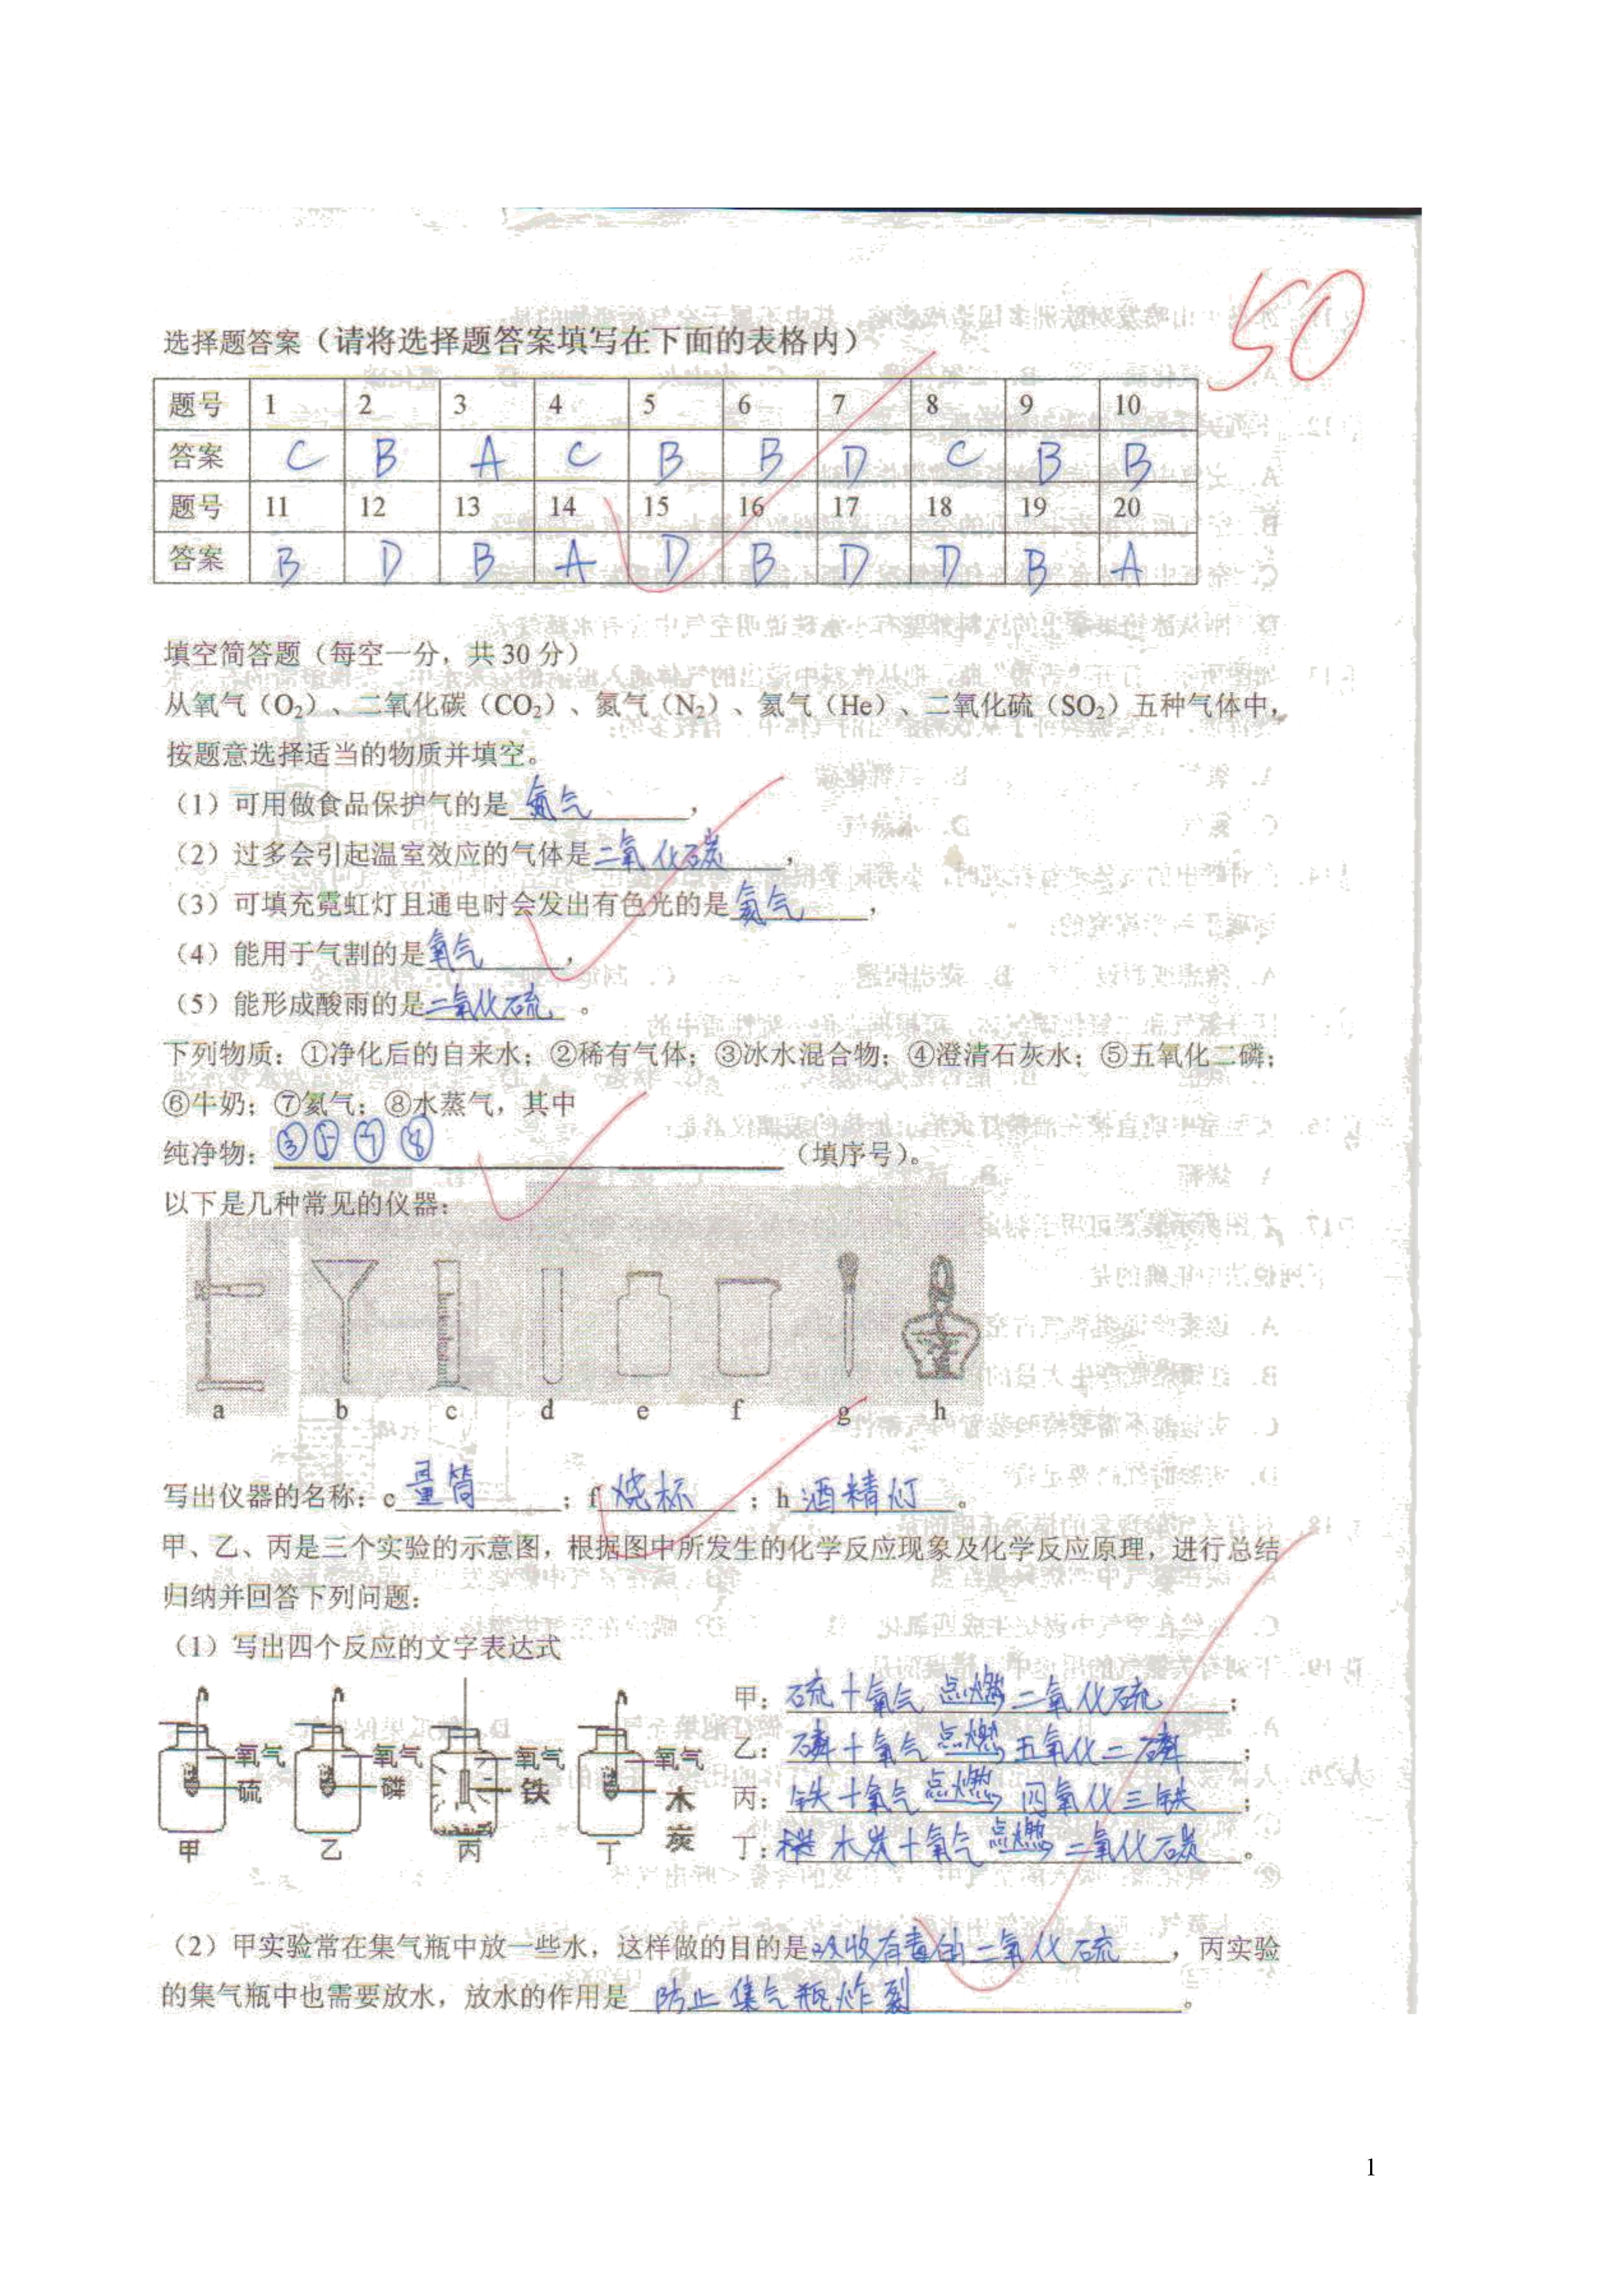 50
选择题答案（请将选择题答案填写在下面的表格内）
题号 1 2 3 4 5 6 7 8 9 10
答案 C B A C B B D C B B
题号 11 12 13 14 15 16 17 18 19 20
答案 B D B A D B D D B A
填空简答题（每空一分，共30分）
从氧气（O₂）、二氧化碳（CO₂）、氮气（N₂）、氦气（He）、二氧化硫（SO₂）五种气体中，
按题意选择适当的物质并填空。
（1）可用做食品保护气的是 氮气，
（2）过多会引起温室效应的气体是二氧化碳，
（3）可填充霓虹灯且通电时会发出有色光的是氦气，
（4）能用于气割的是氧气，
（5）能形成酸雨的是二氧化硫。
下列物质：①净化后的自来水；②稀有气体；③冰水混合物；④澄清石灰水；⑤五氧化二磷；
⑥牛奶；⑦氦气；⑧水蒸气，其中
纯净物：③⑤⑦⑧（填序号）。
以下是几种常见的仪器：
a b c d e f g h
写出仪器的名称：c 量筒；f 烧杯；h 酒精灯。
甲、乙、丙是三个实验的示意图，根据图中所发生的化学反应现象及化学反应原理，进行总结
归纳并回答下列问题：
（1）写出四个反应的文字表达式
氧气 硫 甲
氧气 磷 乙
氧气 铁 丙
氧气 木炭 丁
甲：硫＋氧气 点燃→ 二氧化硫；
乙：磷＋氧气 点燃→ 五氧化二磷；
丙：铁＋氧气 点燃→ 四氧化三铁；
丁：木炭＋氧气 点燃→ 二氧化碳。
（2）甲实验常在集气瓶中放一些水，这样做的目的是吸收有毒的二氧化硫，丙实验
的集气瓶中也需要放水，放水的作用是 防止集气瓶炸裂。
1